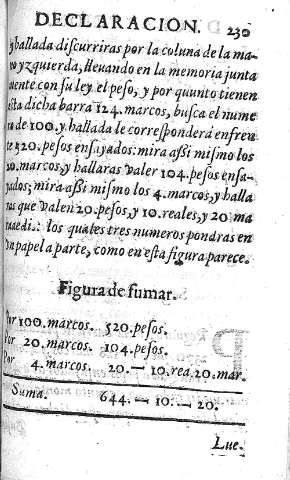 DECLARACION. 230
y hallada discurriras por la coluna de la ma-
no yzquierda, lleuando en la memoria junta
mente con su ley el peso, y por quanto tienen
esta dicha barra 124. marcos, busca el nume
ro de 100. y hallada le corresponderá enfren
te 520. pesos ensayados: mira assi mismo los
20. marcos, y hallaras valer 104. pesos ensa-
yados; mira assi mismo los 4. marcos, y halla
ras que valen 20. pesos, y 10. reales, y 20 ma
rauedi.: los quales tres numeros pondras en
vn papel a parte, como en esta figura parece.
Figura de sumar.
Por 100. marcos. 520. pesos.
Por 20. marcos. 104. pesos.
Por 4. marcos. 20. — 10. rea. 20. mar.
Suma. 644. — 10. — 20.
Lue.